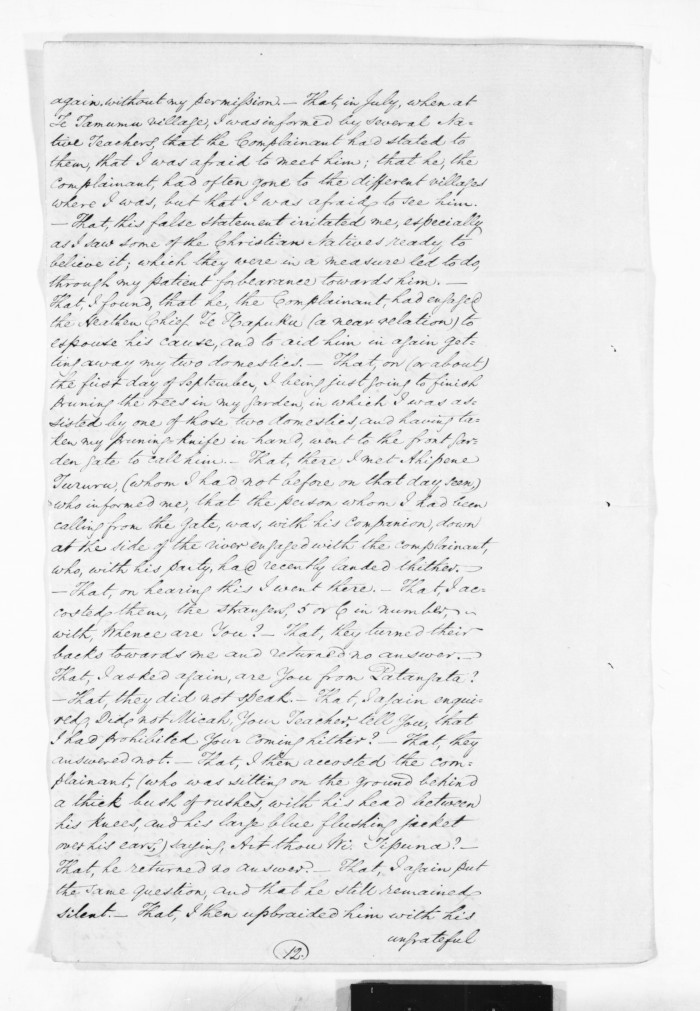 again, without my permission. — That, in July, when at
Te Tamumu village, I was informed by several Na-
tive Teachers, that the Complainant had stated to
them, that I was afraid to meet him; that he, the
Complainant, had often gone to the different villages
where I was, but that I was afraid to see him.
— That, this false statement irritated me, especially
as I saw some of the Christian Natives ready to
believe it; which they were in a measure led to do,
through my patient forbearance towards him. —
That, I found, that he, the Complainant, had engaged
the Heathen Chief Te Hapuku (a near relation) to
espouse his cause, and to aid him in again get-
ting away my two domestics. — That, on (or about)
the first day of September, I being just going to finish
pruning the trees in my garden, in which I was as-
sisted by one of those two domestics, and having ta-
ken my pruning-knife in hand, went to the front gar-
den gate to call him. — That, there I met Ahipene
Tururu, (whom I had not before on that day seen,)
who informed me, that the person whom I had been
calling from the gate, was, with his companion, down
at the side of the river engaged with the complainant,
who, with his party, had recently landed thither. —
— That, on hearing this I went there. — That, I ac-
costed them, the strangers, 5 or 6 in number, —
with, Whence are You? — That, they turned their
backs towards me and returned no answer. —
That, I asked again, are You from Patangata?
— That, they did not speak. — That, I again enqui-
red, Did not Micah, Your Teacher, tell You, that
I had prohibited Your coming hither? — That, they
answered not. — That, I then accosted the com-
plainant, (who was sitting on the ground behind
a thick bush of rushes, with his head between
his knees, and his large blue flushing jacket
over his ears,) saying, Art thou Wi: Tipuna? —
That, he returned no answer. — That, I again put
the same question, and that he still remained
silent. — That, I then upbraided him with his
ungrateful
12.